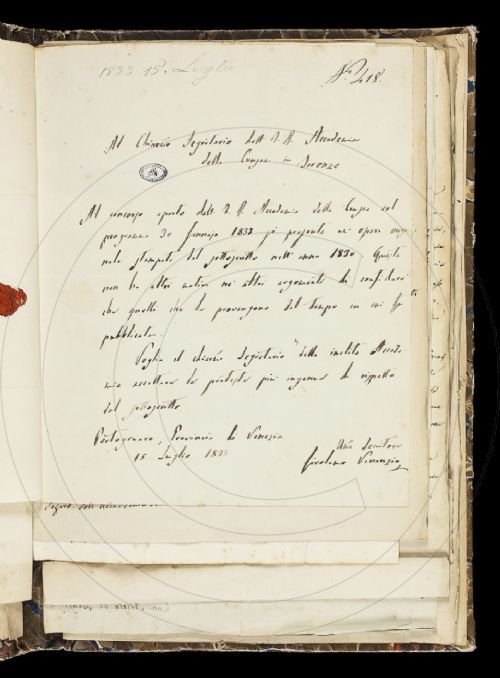 1833. 15. Luglio
N.° 418.
Al Chiariss.o Segretario dell' I. R. Accademia
della Crusca in Firenze
Al concorso aperto dall' I. R. Accademia della Crusca col
programma 30 Gennajo 1833 si presenta un' opera
stampata dal sottoscritto nell' anno 1830. Questa
non ha altri motivi nè altri argomenti di confidenza
che quelli che le provengono dal tempo in cui fu
pubblicata.
Voglia il chiariss.o Segretario della inclita Accade
mia accettare le proteste più ingenue di rispetto
del sottoscritto
Portogruaro, Provincia di Venezia
15 Luglio 1833
Um.o Servitore
Girolamo Venanzio